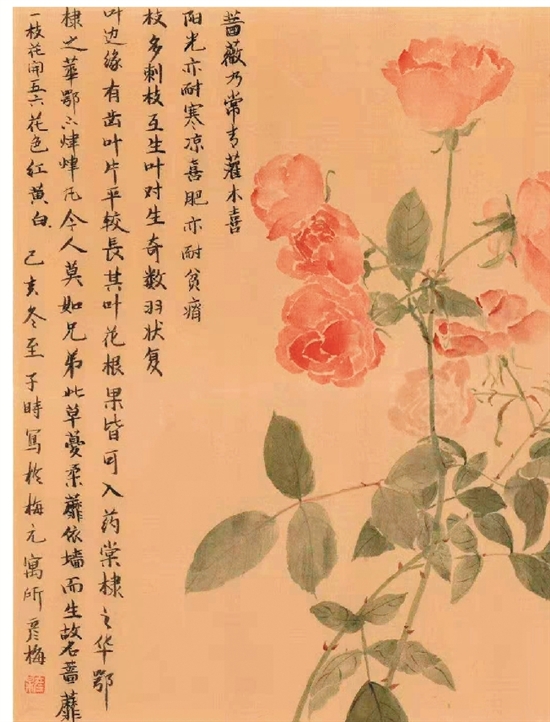 蔷薇乃常青灌木喜
阳光亦耐寒凉喜肥亦耐贫瘠
枝多刺枝互生叶对生奇数羽状复
叶边缘有齿叶片平较長其叶花根果皆可入药棠棣之华鄂
棣之華鄂不煒煒凡今人莫如兄弟此草蔓柔蘼依墙而生故名蔷蘼
一枝花開五六花色红黄白 己亥冬至子時寫於梅元寓所彦梅